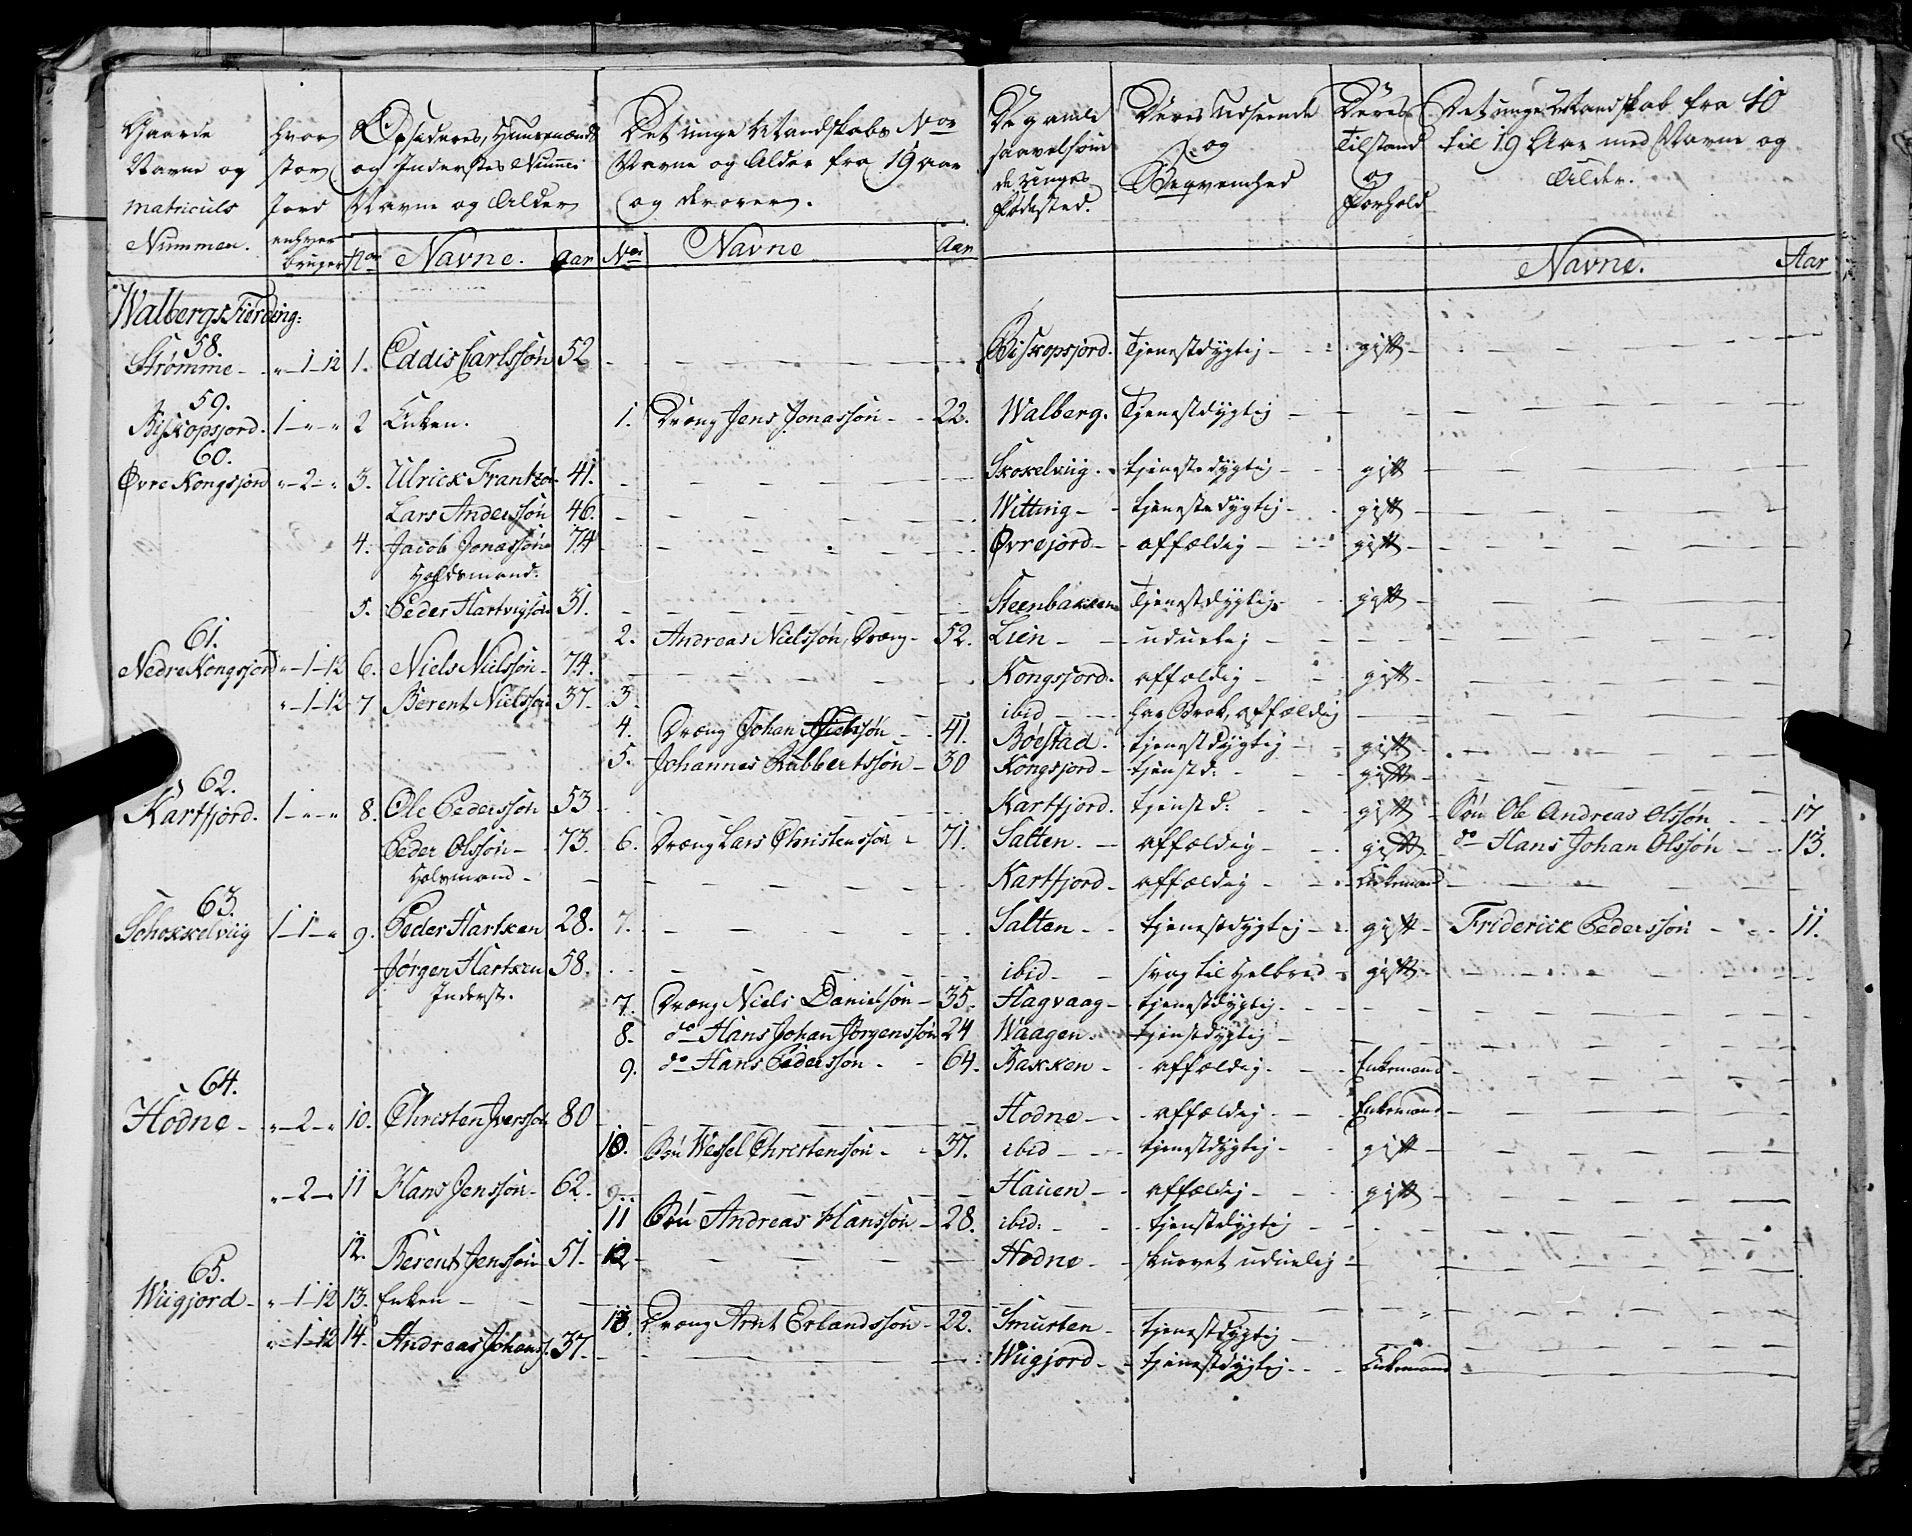 Gaarde Navne og Matriculs Nummer.
Hvor stor Jord enhver bruger
Opsideres, Huusmænds og Inderstes Numer Navne og Alder
Det unge Mandskabs Nor Navne og Alder fra 19 aar og derover.
De gamle saavelsom de Unges Fødested.
Deres Udseende og Beqvemhed
Deres Tilstand og Forhold
Det unge Mandskab fra 10 til 19 Aar med Navne og Alder.
Nor Navne. Aar Nor Navne Aar Navne. Aar
Walbergs Fierding:
58.
Strømme - „-1-12 1. Eddis Carlssøn 52 Biskopsjord. Tjenestdygtig - gift -
59.
Biskopsjord. 1-„-„ 2 Enken. 1. Dræng Jens Jonassøn - 22. Walberg. Tjenestdygtig -
60.
Øvre Kongsjord „-2-„ 3. Ulrick Frantzøn 41. Skokelviig. tjenestedygtig - gift
Lars Anderssøn 46. Witting - tjenestedygtig - gift -
4. Jacob Jonassøn 74 Øvrejord - affældig - gift -
Holdsmand.
5. Peder Hartvigsøn 31. Steenbakken Tjenestdygtig. gift -
61.
2. Andreas Nielssøn, Dræng - 52. Lien - uduelig -
Nedre Kongsjord „-1-12 6. Niels Nielssøn - 74. Kongsjord. affældig - gift -
„-1-12 7 Berent Nielssøn 37. 3. ibid - har Brok, affældig
4. Dræng Johan Nielssøn - 41. Bøestad. tjenestdygtig - gift
5. Johannes Rubbertssøn - 30 Kongsjord - tjenstd: gift -
62.
Kartfjord. 1-„-„ 8. Ole Pederssøn 53 Kartfjord. tjenst d: gift - Søn Ole Andreas Olssøn - 17
Peder Olssøn - 73. 6. Dræng Lars Christenssøn - 71. Salten. - affældig - gift - do Hans Johan Olssøn - 13.
Holdsmand - Kartfjord - affældig - Enkemand -
63.
Schokkelviig 1-1-„ 9. Peder Hartken 28. 7. Salten - tjenestdygtig - gift - Friderick Pederssøn - 11.
Jørgen Hartken 58. ibid - svag til Helbred - gift -
Inderst.
7. Dræng Niels Danielsøn - 35. Hagvaag - tjenestdygtig.
8. do Hans Johan Jørgenssøn 24 Waagen. tjenstdygtig -
9. do Hans Pederssøn - 64. Bakken - affældig. - Enkemand -
64.
Hodne - „-2-„ 10. Christen Iverssøn 80 Hodne - affældig. - Enkemand -
10. Søn Wessel Christenssøn - 37. ibid - tjenestdygtig - gift -
„-2-„ 11 Hans Jenssøn - 62. 9. Hauen - affældig - gift -
11 Søn Andreas Hanssøn - 28. ibid: - tjenstdygtig -
12. Berent Jenssøn 51. 12 Hodne - skurvet uduelig -
65.
Wiigjord - „-1-12 13. Enken -
13. Dræng Arnt Erlandssøn - 22. Smurten - tjenestdygtig -
„-1-12 14. Andreas Johans. 37. Wiigjord - tjenestdygtig - Enkemand